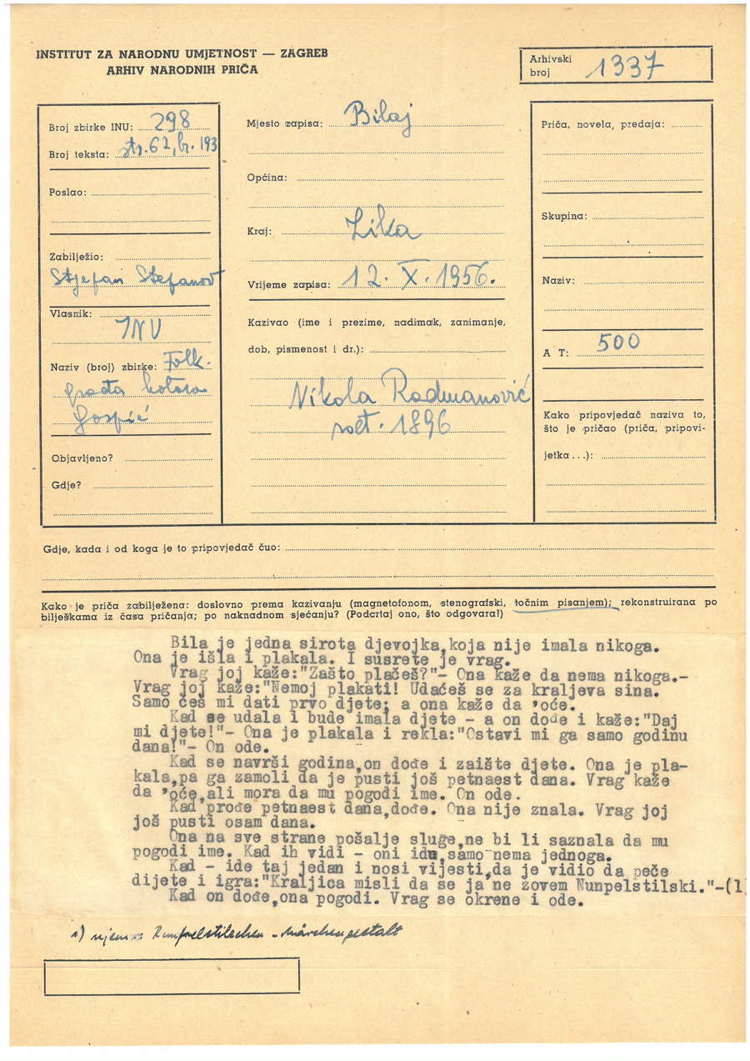 INSTITUT ZA NARODNU UMJETNOST — ZAGREB
ARHIV NARODNIH PRIČA
Arhivski
broj 1337
Broj zbirke INU: 298
Broj teksta: str. 62, br. 193
Poslao:
Zabilježio:
Stjepan Stefanov
Vlasnik:
INU
Naziv (broj) zbirke: Folk.
građa kotara
Gospić
Objavljeno?
Gdje?
Mjesto zapisa: Bilaj
Općina:
Kraj: Lika
Vrijeme zapisa: 12. X. 1956.
Kazivao (ime i prezime, nadimak, zanimanje,
dob, pismenost i dr.):
Nikola Radmanović
rođ. 1896
Priča, novela, predaja:
Skupina:
Naziv:
A T: 500
Kako pripovjedač naziva to,
što je pričao (priča, pripovi-
jetka ...):
Gdje, kada i od koga je to pripovjedač čuo:
Kako je priča zabilježena: doslovno prema kazivanju (magnetofonom, stenografski, točnim pisanjem); rekonstruirana po
bilješkama iz časa pričanja; po naknadnom sjećanju? (Podcrtaj ono, što odgovara!)
Bila je jedna sirota djevojka,koja nije imala nikoga.
Ona je išla i plakala. I susrete je vrag.
Vrag joj kaže:"Zašto plačeš?"- Ona kaže da nema nikoga.-
Vrag joj kaže:"Nemoj plakati! Udaćeš se za kraljeva sina.
Samo ćeš mi dati prvo djete; a ona kaže da 'oće.
Kad se udala i bude imala djete - a on dođe i kaže:"Daj
mi djete!"- Ona je plakala i rekla:"Ostavi mi ga samo godinu
dana!"- On ode.
Kad se navrši godina,on dođe i zaište djete. Ona je pla-
kala,pa ga zamoli da je pusti još petnaest dana. Vrag kaže
da 'oće,ali mora da mu pogodi ime. On ode.
Kad prođe petnaest dana,dođe. Ona nije znala. Vrag joj
još pusti osam dana.
Ona na sve strane pošalje sluge,ne bi li saznala da mu
pogodi ime. Kad ih vidi - oni idu,samo nema jednoga.
Kad - ide taj jedan i nosi vijesti,da je vidio da peče
dijete i igra:"Kraljica misli da se ja ne zovem Nunpelstilski."-(1
Kad on dođe,ona pogodi. Vrag se okrene i ode.
1) njem. Rumpelstilzchen - Märchengestalt